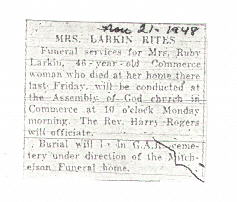 Nov 21-1948
MRS. LARKIN RITES
Funeral services for Mrs. Ruby
Larkin, 46-year-old Commerce
woman who died at her home there
last Friday, will be conducted at
the Assembly of God church in
Commerce at 10 o'clock Monday
morning. The Rev. Harry Rogers
will officiate.
Burial will be in G.A.R. ceme-
tery under direction of the Mitch-
elson Funeral home.